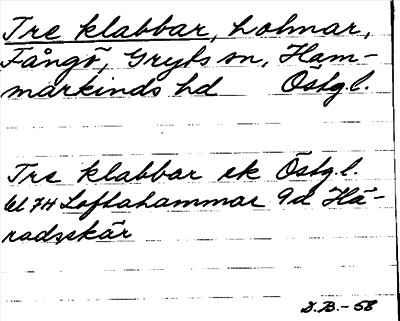 Tre klabbar, holmar,
Fångö, Gryts sn, Ham-
markinds hd Östg.l.
Tre klabbar ek Östg.l.
bl 7H Loftahammar 9d Hä-
radsskär
D.B.-58